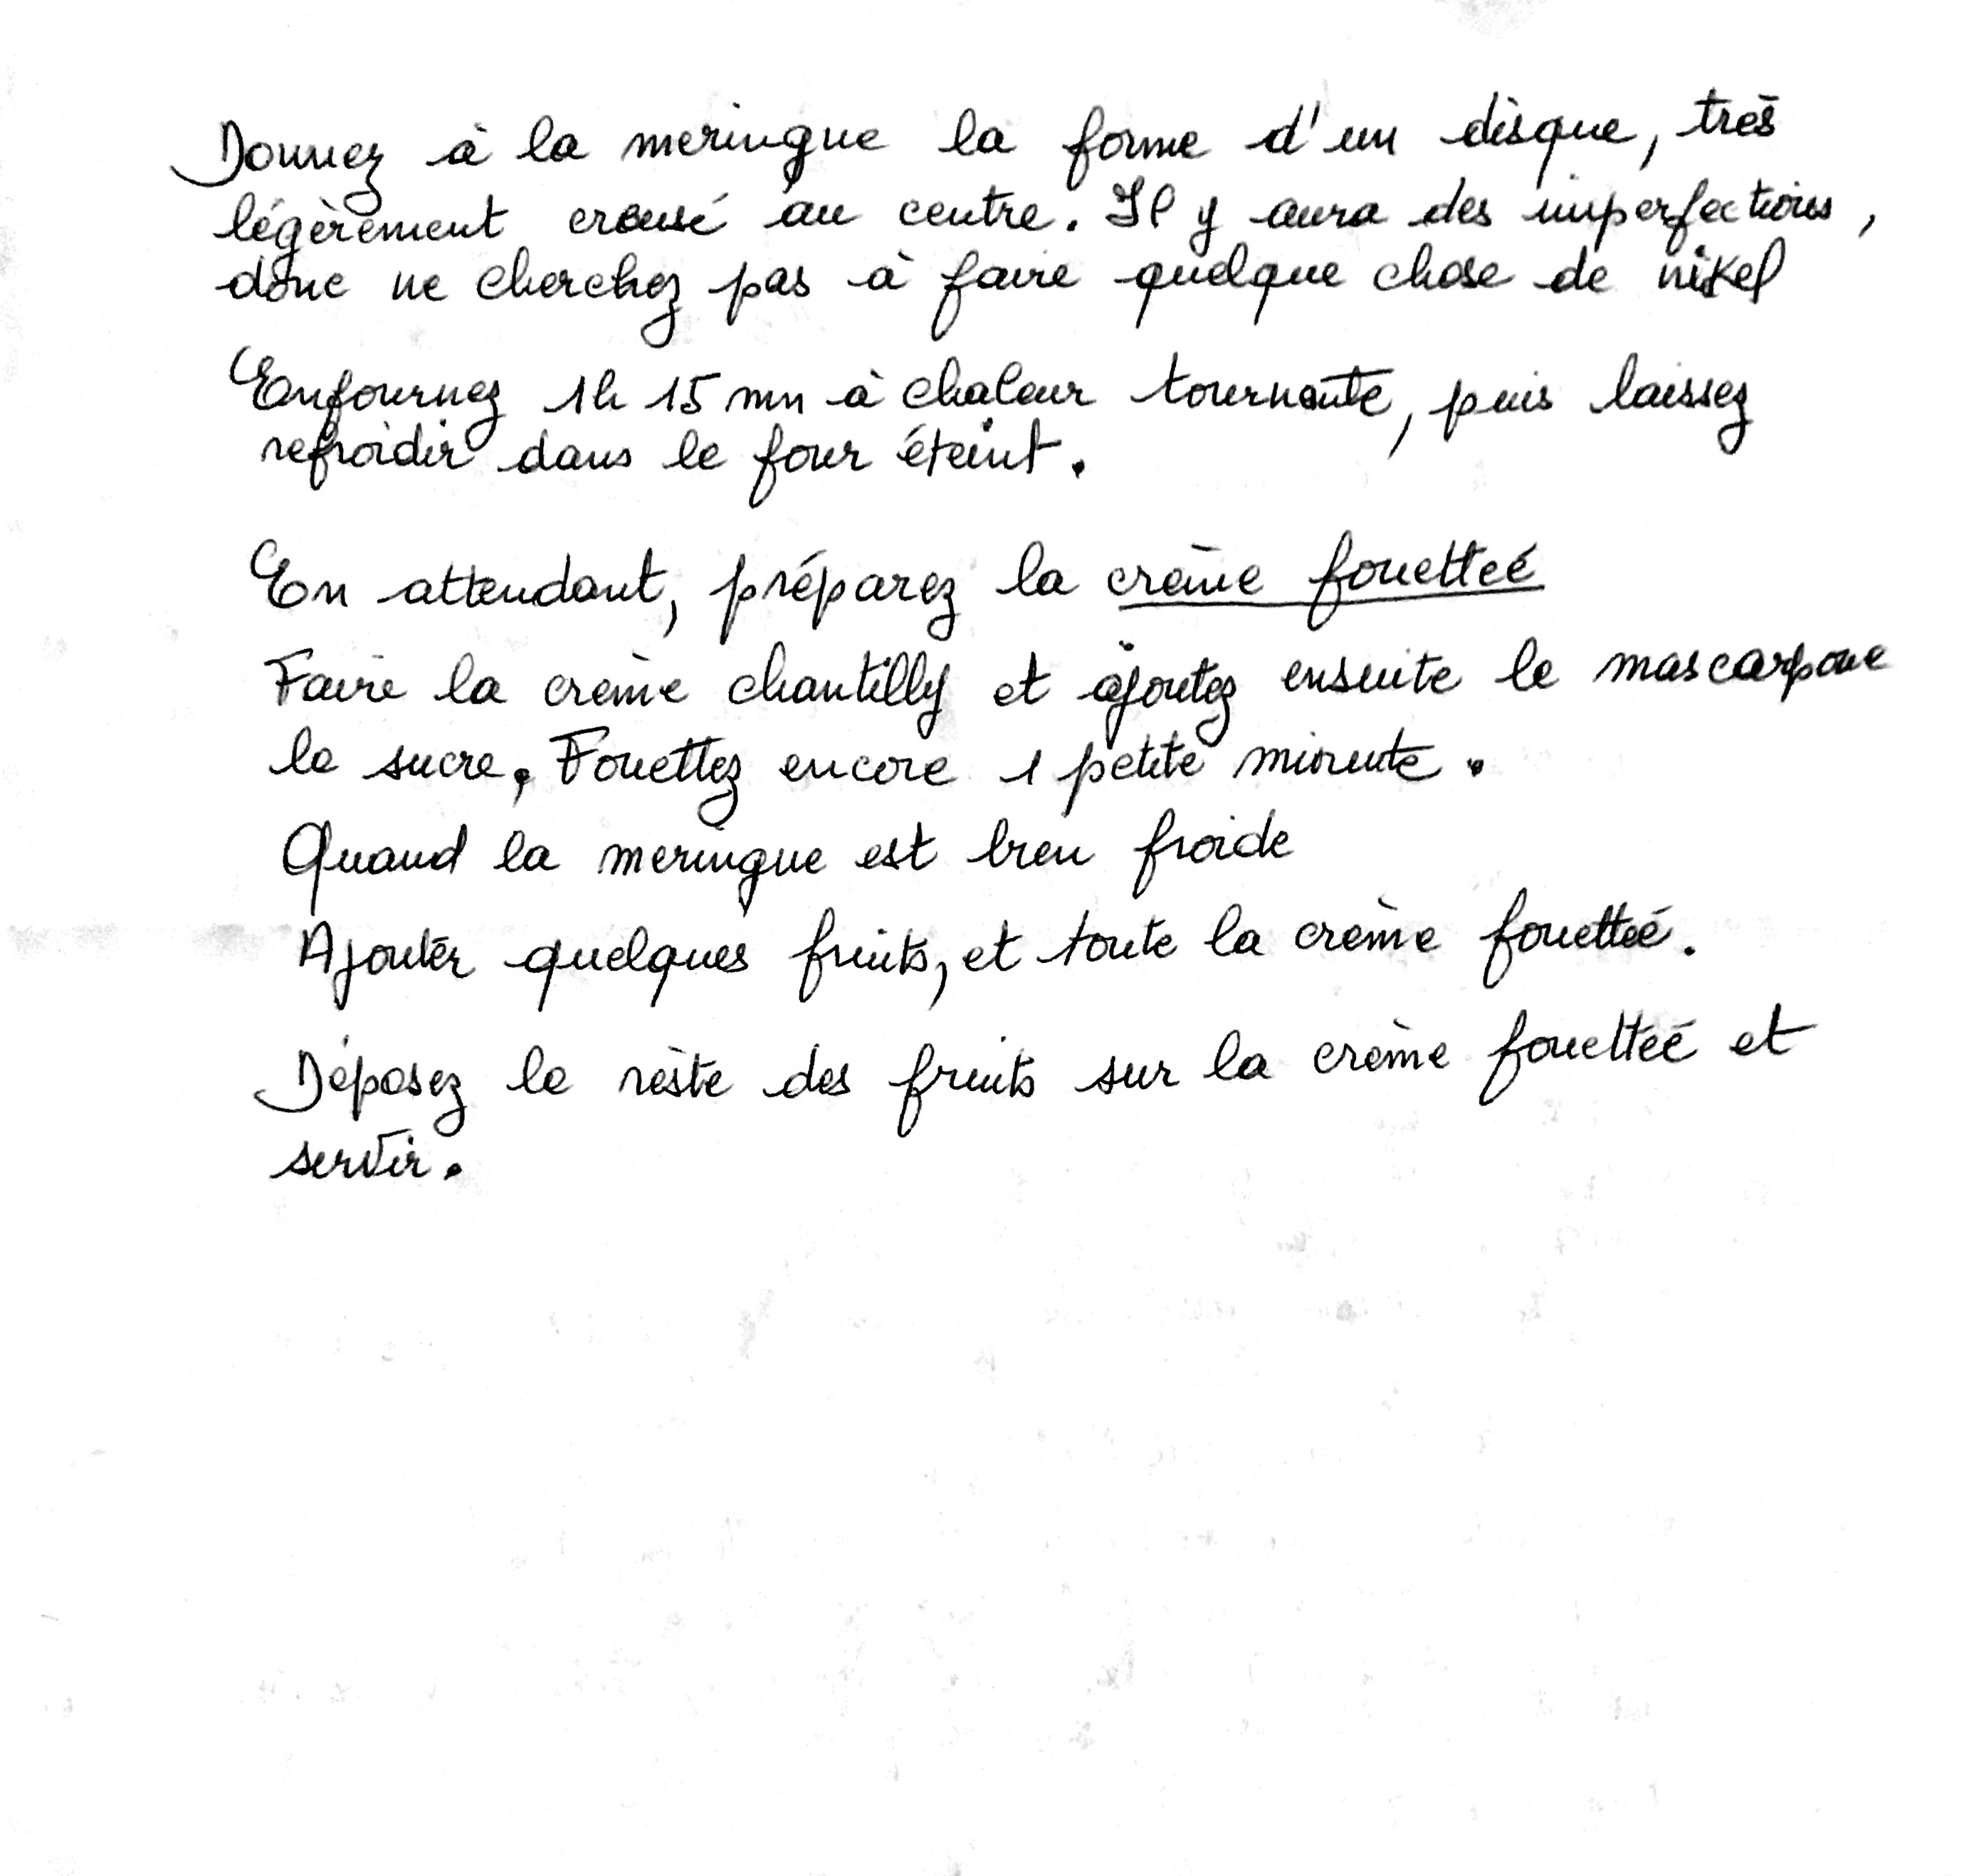 Donnez à la meringue la forme d'un disque, très
légèrement creusé au centre. Il y aura des imperfections,
donc ne cherchez pas à faire quelque chose de nikel
Enfournez 1h 15 mn à chaleur tournante, puis laissez
refroidir dans le four éteint.
En attendant, préparez la crème fouettée
Faire la crème chantilly et ajoutez ensuite le mascarpone
le sucre, Fouettez encore 1 petite minute.
Quand la meringue est bien froide
Ajouter quelques fruits, et toute la crème fouettée.
Déposez le reste des fruits sur la crème fouettée et
servir.